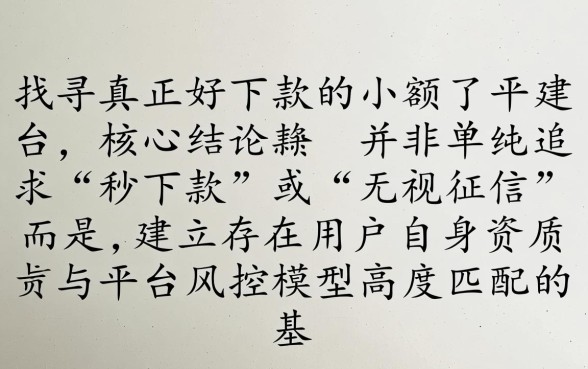 找寻真正好下款的小额了平建
台，核心结论 并非单纯追
求“秒下款”或“无视征信”
而是，建立存在用户自身资质
与平台风控模型高度匹配的
基